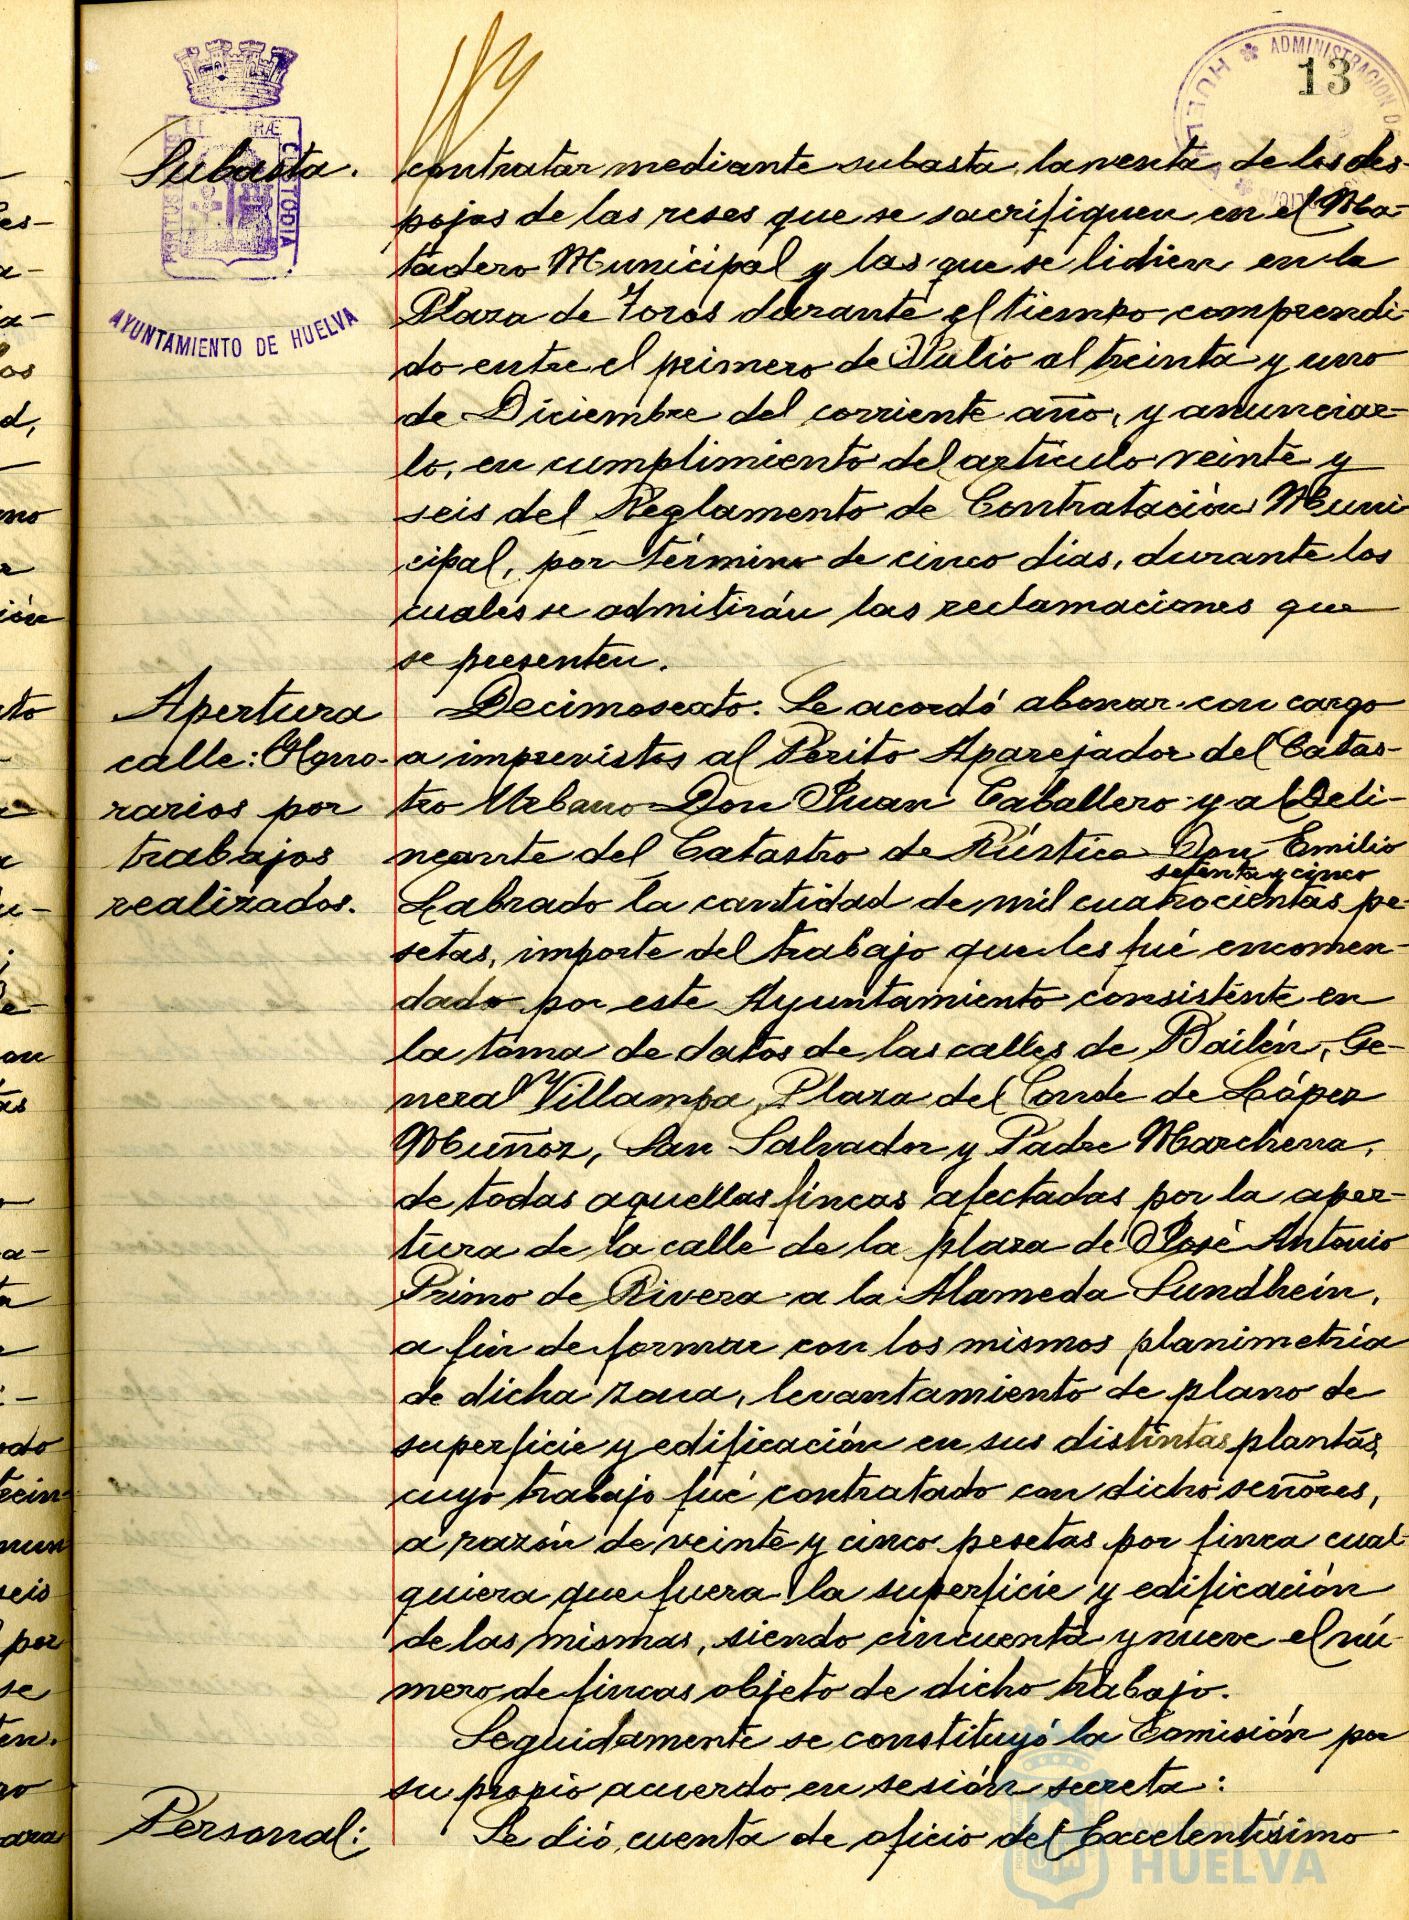 13
ADMINISTRACION DE
HUELVA
PORTUS MARIS ET TERRÆ CUSTODIA
AYUNTAMIENTO DE HUELVA
Subasta. contratar mediante subasta, la venta de los des-
pojos de las reses que se sacrifiquen en el Ma-
tadero Municipal y las que se lidien en la
Plaza de Toros durante el tiempo comprendi-
do entre el primero de Julio al treinta y uno
de Diciembre del corriente año, y anunciar-
lo, en cumplimiento del artículo veinte y
seis del Reglamento de Contratación Muni
cipal, por término de cinco dias, durante los
cuales se admitirán las reclamaciones que
se presenten.
Apertura Decimosexto. Se acordó abonar con cargo
calle: Hono- a imprevistos al Perito Aparejador del Catas-
rarios por tro Urbano Don Juan Caballero y al Deli-
trabajos neante del Catastro de Rústica Don Emilio
setenta y cinco
realizados. Labrado la cantidad de mil cuatrocientas pe-
setas, importe del trabajo que les fué encomen-
dado por este Ayuntamiento consistente en
la toma de datos de las calles de Bailén, Ge-
neral Villampa, Plaza del Conde de López
Muñoz, San Salvador y Padre Marchena,
de todas aquellas fincas afectadas por la aper-
tura de la calle de la plaza de José Antonio
Primo de Rivera a la Alameda Sundhein,
a fin de formar con los mismos planimetría
de dicha zona, levantamiento de plano de
superficie y edificación en sus distintas plantas,
cuyo trabajo fué contratado con dicho señores,
a razón de veinte y cinco pesetas por finca cual-
quiera que fuera la superficie y edificación
de las mismas, siendo cincuenta y nueve el nú-
mero de fincas objeto de dicho trabajo.
Seguidamente se constituyó la Comisión por
su propio acuerdo en sesión secreta:
Personal: Se dió cuenta de oficio del Excelentísimo
HUELVA